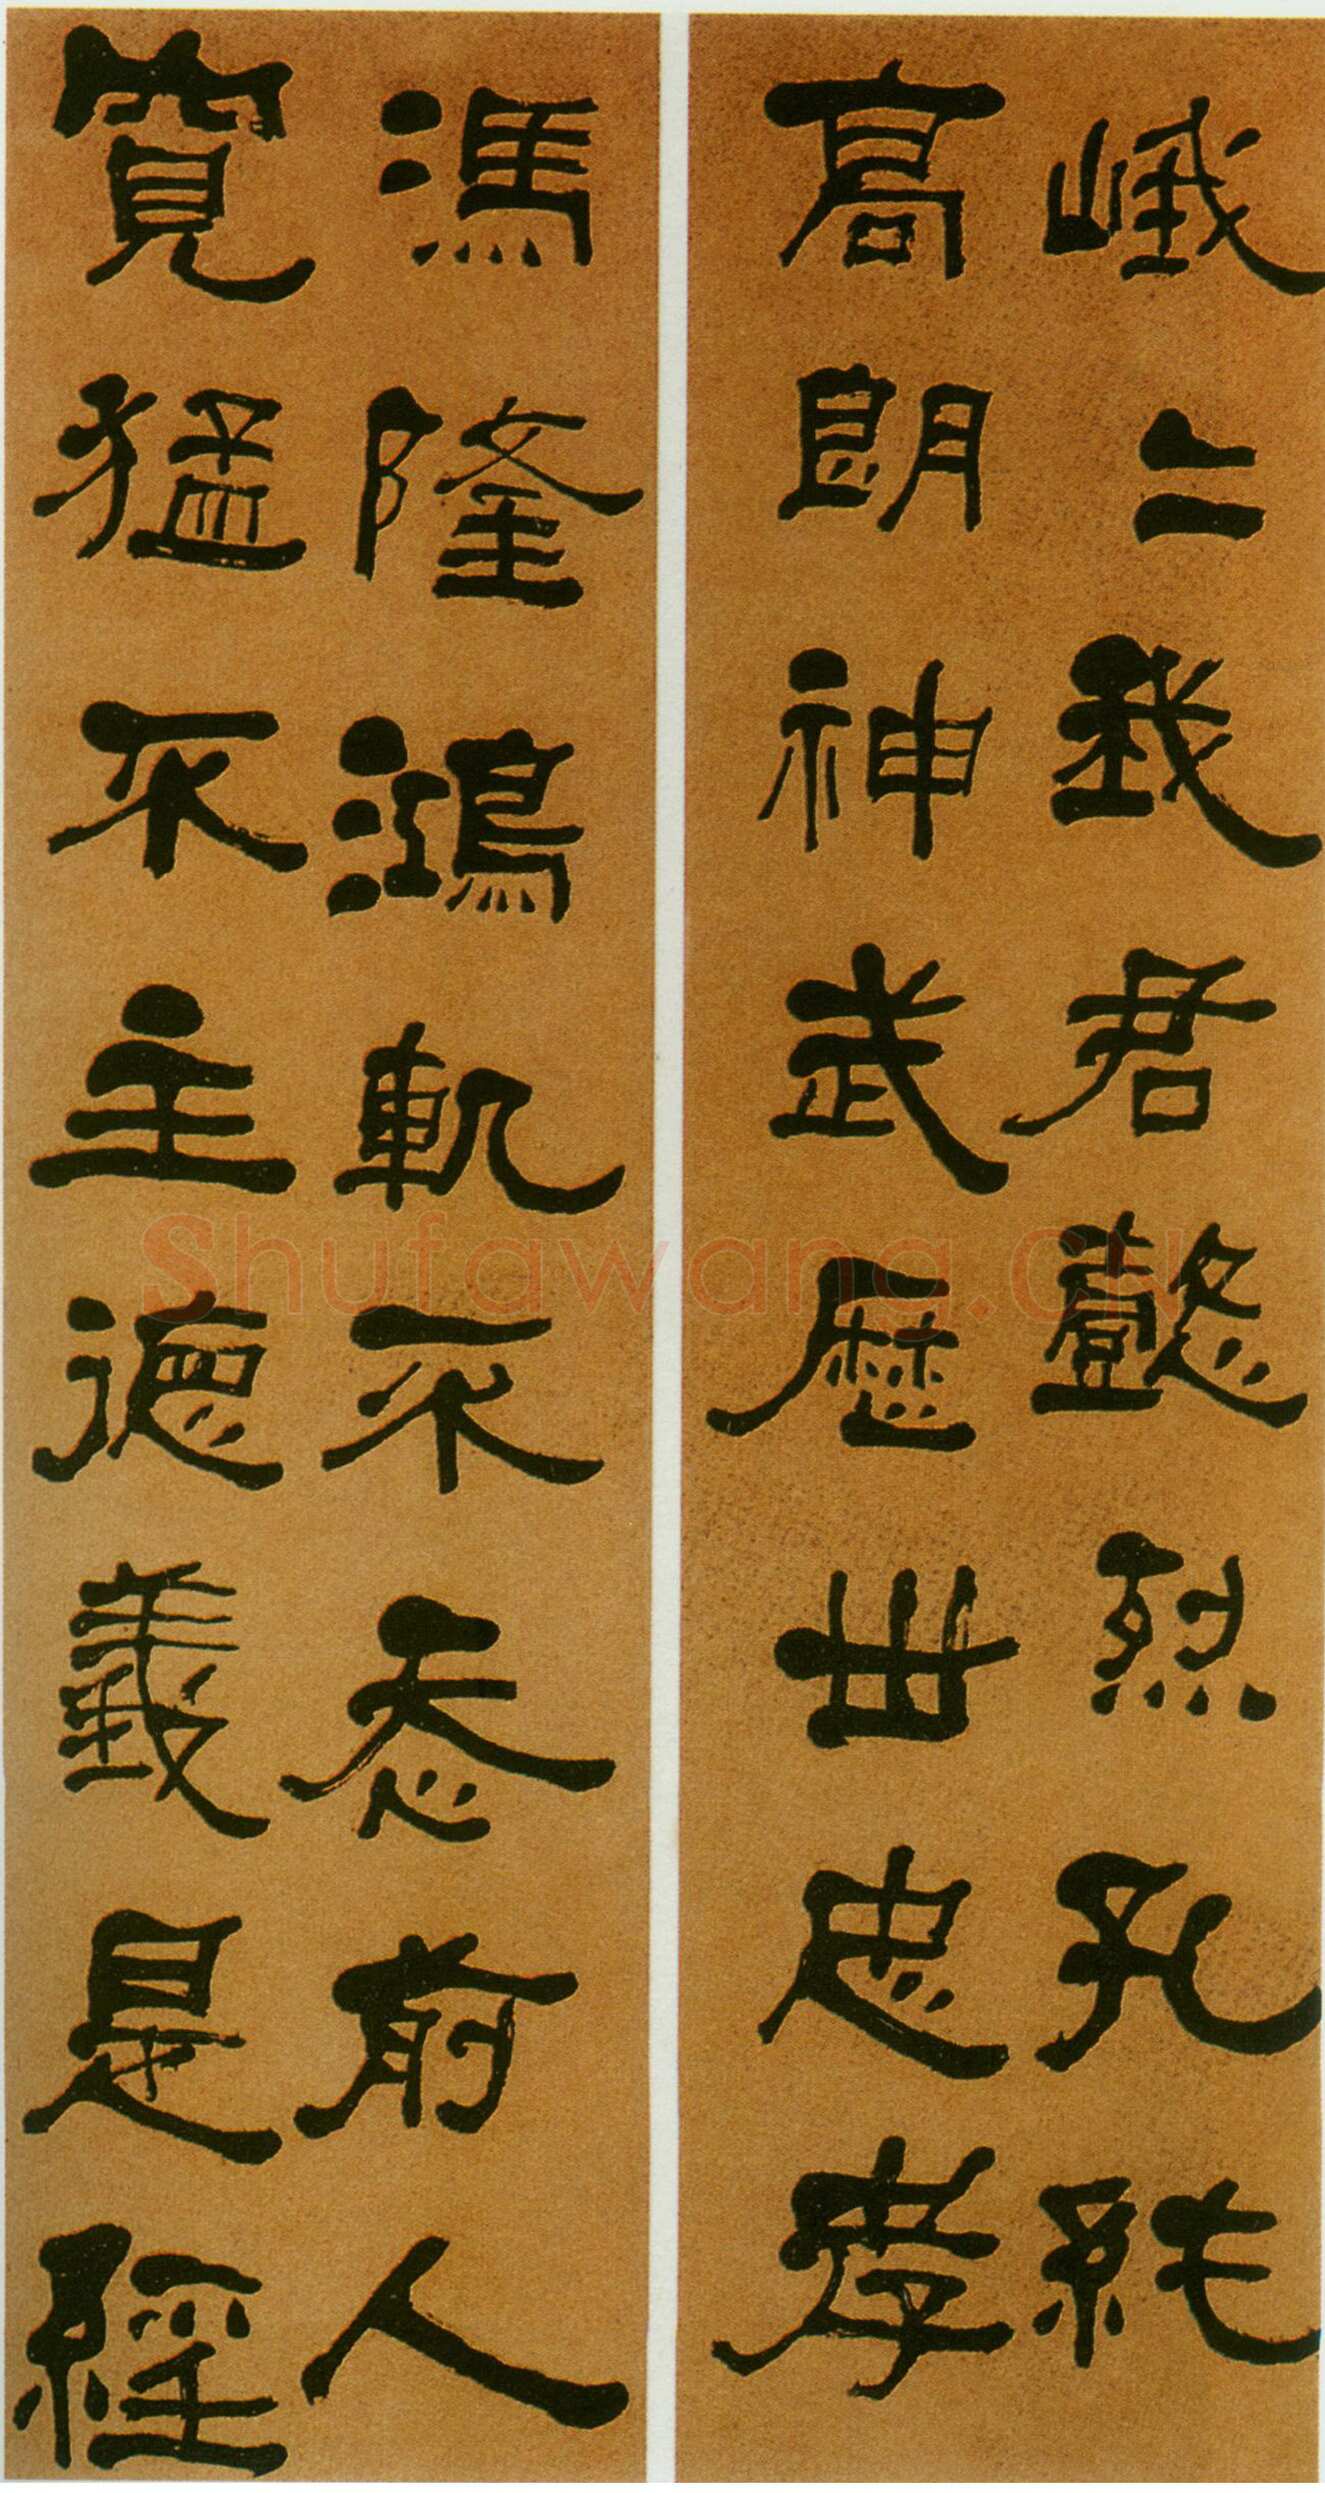 峨〻我君懿烈孔純
高朗神武歷世忠孝
馮隆鴻軌不忝前人
寬猛不主德義是經
Shufawang.CN